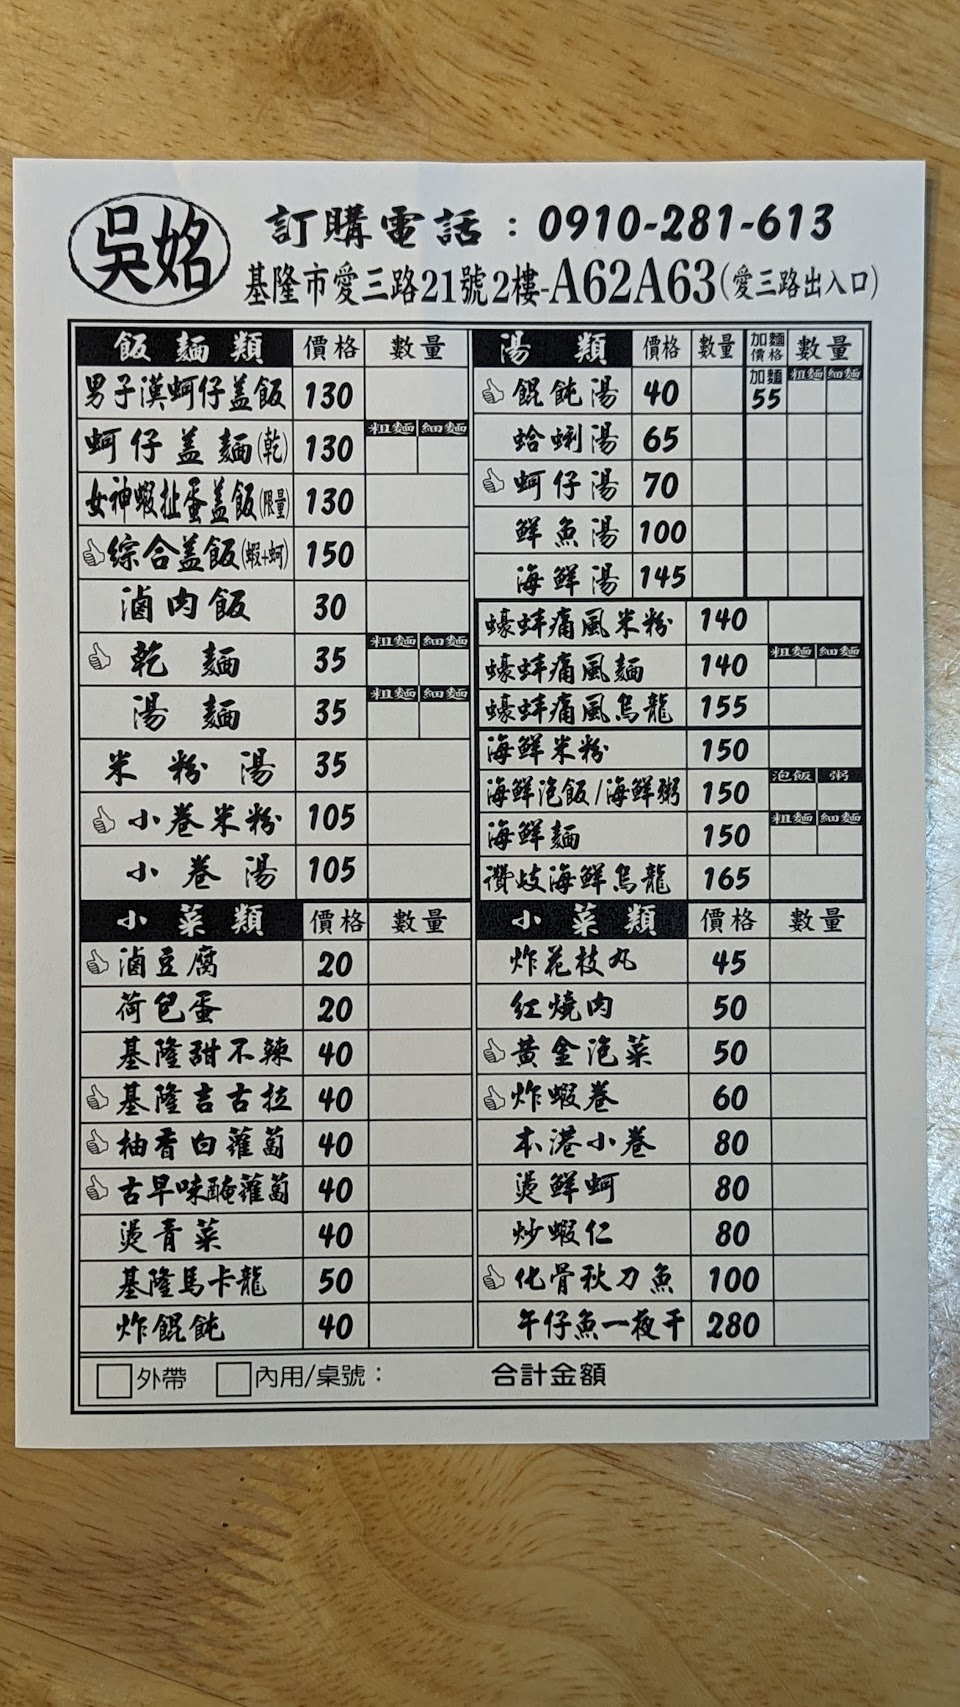 吳姳
訂購電話：0910-281-613
基隆市愛三路21號2樓-A62A63(愛三路出入口)
飯麵類 價格 數量
男子漢蚵仔蓋飯 130
蚵仔蓋麵(乾) 130 粗麵 細麵
女神蝦扯蛋蓋飯(限量) 130
綜合蓋飯(蝦+蚵) 150
滷肉飯 30
乾麵 35 粗麵 細麵
湯麵 35 粗麵 細麵
米粉湯 35
小卷米粉 105
小卷湯 105
湯類 價格 數量 加麵價格 數量
餛飩湯 40 加麵55 粗麵 細麵
蛤蜊湯 65
蚵仔湯 70
鮮魚湯 100
海鮮湯 145
蠔蚌痛風米粉 140
蠔蚌痛風麵 140 粗麵 細麵
蠔蚌痛風烏龍 155
海鮮米粉 150
海鮮泡飯/海鮮粥 150 泡飯 粥
海鮮麵 150 粗麵 細麵
讚岐海鮮烏龍 165
小菜類 價格 數量
滷豆腐 20
荷包蛋 20
基隆甜不辣 40
基隆吉古拉 40
柚香白蘿蔔 40
古早味醃蘿蔔 40
燙青菜 40
基隆馬卡龍 50
炸餛飩 40
小菜類 價格 數量
炸花枝丸 45
紅燒肉 50
黃金泡菜 50
炸蝦卷 60
本港小卷 80
燙鮮蚵 80
炒蝦仁 80
化骨秋刀魚 100
午仔魚一夜干 280
外帶 內用/桌號： 合計金額